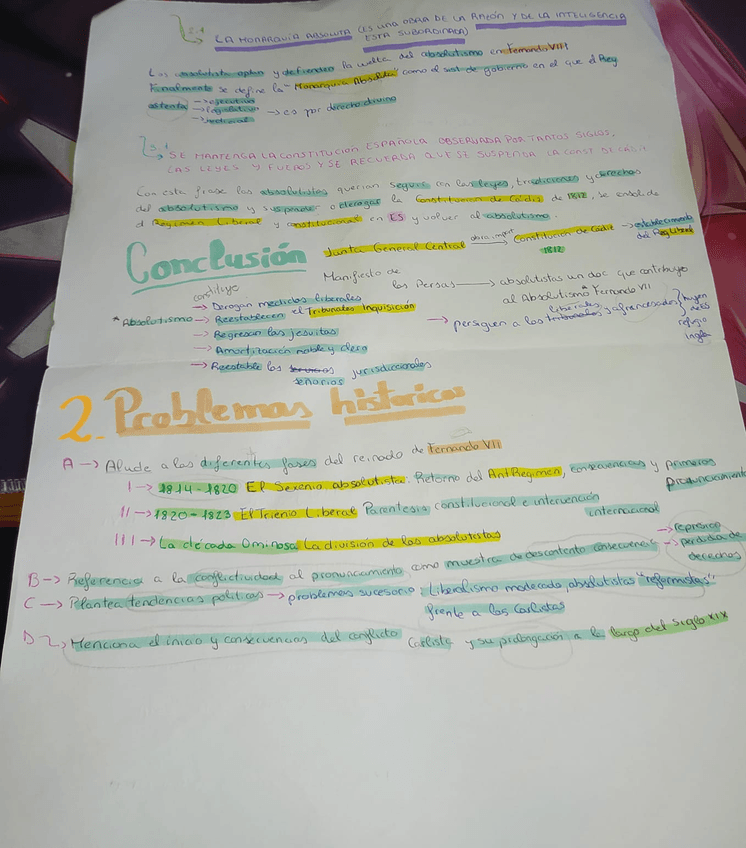 2.4 LA MONARQUÍA ABSOLUTA (ES UNA OBRA DE LA RAZÓN Y DE LA INTELIGENCIA
ESTÁ SUBORDINADA)
Los absolutista optan y defienden la vuelta del absolutismo en Fernando VII
Finalmente se define la "Monarquía Absoluta" como el sist. de gobierno en el que el Rey
ostenta → ejecutivo
→ legislativo → es por derecho divino
→ judicial
SE MANTENGA LA CONSTITUCIÓN ESPAÑOLA OBSERVADA POR TANTOS SIGLOS,
LAS LEYES Y FUEROS Y SE RECUERDA QUE SE SUSPENDA LA CONST DE CÁDIZ
Con esta frase los absolutistas querían seguir con las leyes, tradiciones y derechos
del absolutismo y suspender o derogar la Constitución de Cádiz de 1812, se
el Régimen Liberal y constitucional en ES y volver al absolutismo.
Conclusión
Junta General Central obra import → Constitución de Cádiz → establecimiento
1812 del Rég Liberal
Manifiesto de
los Persas → absolutistas un doc que contribuyo
al Absolutismo Fernando VII
constituye
* Absolutismo → Derogan medidas liberales
→ Reestablecen el Tribunales Inquisición
→ Regresan los jesuitas
→ Amortización noble y clero
→ Reestable los señoríos jurisdiccionales
→ persiguen a los liberales y afrancesados huyen
refugio
2. Problemas históricos
A → Alude a las diferentes fases del reinado de Fernando VII
I → 1814-1820 El Sexenio absolutista. Retorno del Ant Regimen, consecuencias y primeros
pronunciamientos
II → 1820-1823 El Trienio Liberal Paréntesis constitucional e intervención
internacional
III → La década Ominosa La división de los absolutistas
B → Referencia a la conflictividad al pronunciamiento, como muestra de descontento consecuenc → represión
→ perdida de
derechos
C → Plantea tendencias políticas → problemas sucesorio: Liberalismo moderado, absolutistas "reformistas"
frente a los carlistas
D → Menciona el inicio y consecuencias del conflicto Carlista y su prolongación a lo largo del siglo XIX